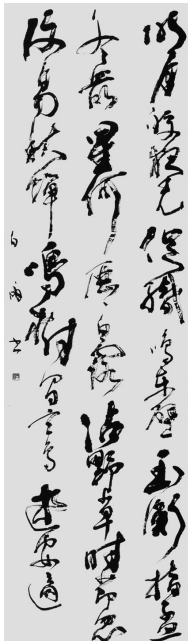 明月皎夜光促織鳴東壁玉衡指孟
冬眾星何歷々白露沾野草時節忽
復易秋蟬鳴樹間玄鳥逝安適